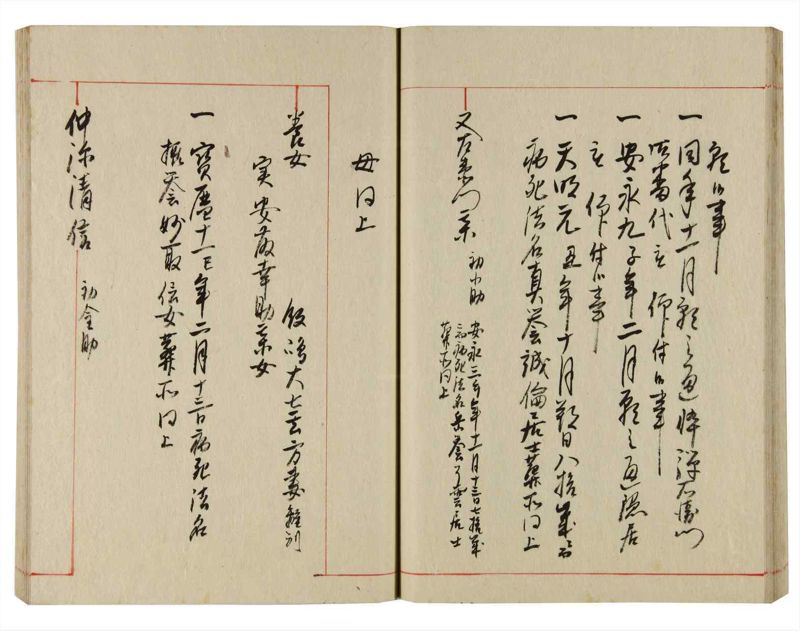 願候事
一同年十一月願之通悴
咲當代被 仰付候事
一安永九子年二月願之通隠居
被 仰付候事
一天明元丑年十月朔日八拾歳ニ而
病死法名真誉誠倫居士葬所同上
又右衛門 初小助
安永三午年十二月十三日七拾歳
ニ而病死法名 居士
葬所同上
母同上
養女 大七方妻離別
実安藤幸助
一寶暦十一巳年二月十三日病死法名
誉妙取信女葬所同上
仲清信 初金助